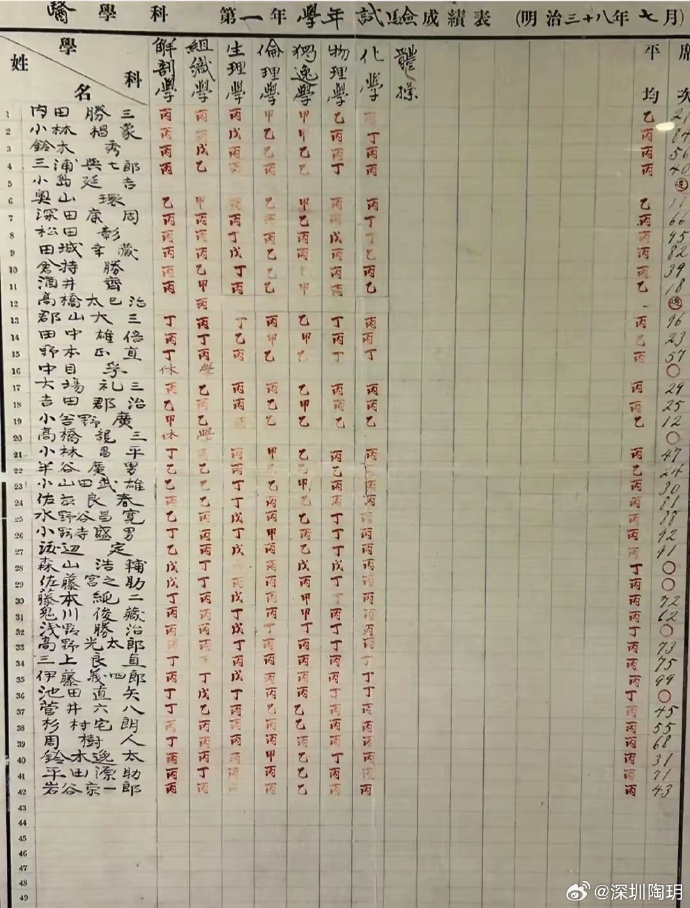 醫學科 第一年學年試驗成績表 (明治三十八年七月)
學科 姓名 解剖學 組織學 生理學 倫理學 獨逸學 物理學 化學 體操 平均 席次
1 内田勝三 丙 丙 甲 甲 乙 乙 21
2 小林 丙 戊 乙 甲 丙 丁 丙 84
3 鈴木秀 丙 戊 丙 乙 乙 丙 丙 丙 56
4 三浦與七郎 丙 乙 丙 乙 丁 丙 丙 40
5 小島延吉
6 奥山環 乙 甲 丙 乙 甲 丙 丙 乙 11
7 深田康周 丙 丙 丙 乙 丙 丁 丙 66
8 松田彰 丙 丙 丁 丙 丙 戊 丙 丙 95
9 田城幸藏 丙 丙 丙 乙 丙 乙 丙 82
10 倉持勝 丙 乙 丁 乙 丙 乙 丙 39
11 酒井齊 丙 甲 丙 甲 甲 丙 乙 乙 18
12 高橋太巳治 丙
13 郡山大三 丁 丙 丁 丙 乙 丁 丙 丙 96
14 田中雄 丙 丁 乙 甲 甲 丙 丙 丙 23
15 野本正直 丁 丙 丙 乙 乙 丁 丁 丙 57
16 中目孚 休學
17 大場礼三 丙 乙 丙 丙 乙 丙 丙 丙 29
18 吉田郡治 乙 丙 丙 乙 甲 丙 丙 丙 25
19 小谷野廣 甲 乙 乙 乙 乙 乙 乙 12
20 高橋龍三 休學
21 小林昌平 丁 丙 甲 乙 丙 丙 丙 47
22 半谷廣男 乙 乙 丙 乙 丙 丙 乙 24
23 小山田武雄 乙 乙 丁 乙 甲 丙 丁 丙 30
24 佐良春 丙 乙 丁 丙 乙 丙 丙 丙 81
25 水野谷昌寛 乙 丙 戊 丙 乙 丁 丙 丙 88
26 小野寺盛男 丁 丙 戊 甲 丙 丁 丁 丙 92
27 渡辺定 乙 丙 戊 丙 乙 丁 丙 丙 91
28 森山浩輔 戊 丁 丙 丙 戊 丁 丙 丁
29 佐藤宮之助 戊 丁 戊 丙 丙 戊 丙 丙
30 藤本純二 乙 丙 丙 丙 甲 丁 丙 丙 72
31 鬼川俊藏 丙 丙 丁 丙 甲 丙 丙 丙 62
32 浅野勝治 丙 丙 戊 丁 乙 丁 丁 丙
33 高野光太郎 丙 丙 丁 丙 丙 丙 丁 丙 73
34 三上良直 丁 丁 丙 丙 丙 丙 丙 75
35 伊藤義四郎 丁 丙 戊 丙 丙 丙 丁 丙 99
36 池田直矢 丁 戊 丁 丙 丙 丁 丁 丁
37 菅井六八 丁 丙 丁 乙 乙 丙 丙 丙 45
38 杉村宅朗 丙 丙 丙 乙 乙 丙 丙 丙 55
39 周樹人 丁 丙 丙 乙 丙 丙 丙 丙 68
40 鈴木逸太 丙 乙 丙 甲 乙 丙 丁 丙 31
41 平田源助 丙 丁 丙 丙 乙 丙 丙 丙 71
42 岩谷宗一郎 丙 丙 丙 甲 乙 丙 丙 丙 43
43
44
45
46
47
48
49
@深圳陶玥